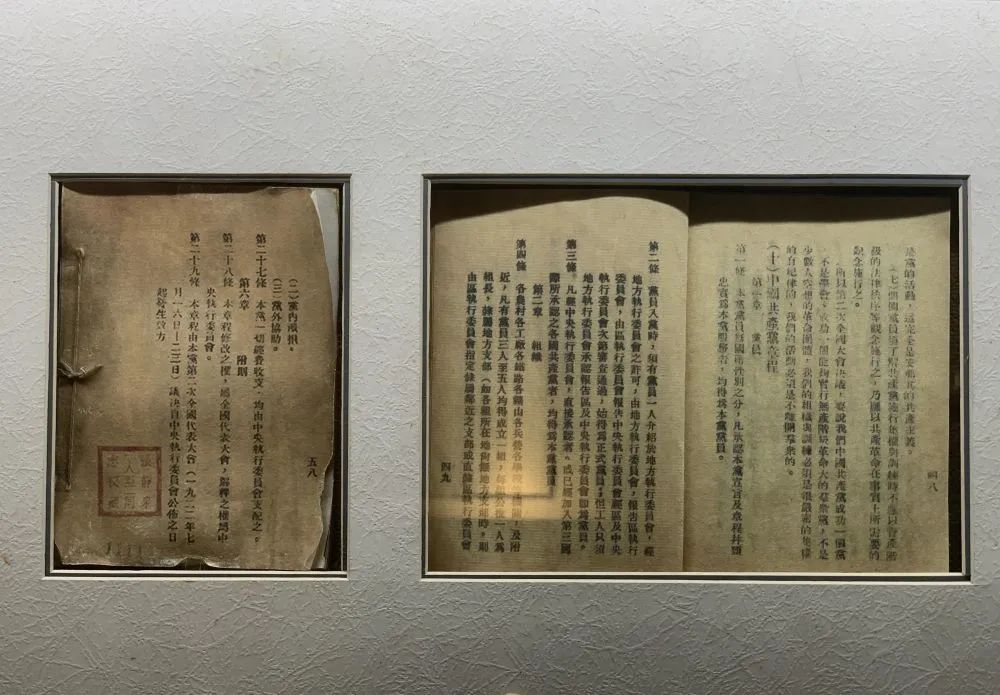 是黨的活動，這完全是安那其的共產主義。
（七）個個黨員須了解共產黨施行集權與訓練時不應以資產階
級的法律秩序等觀念施行之，乃應以共產革命在事實上所需要的
觀念施行之。
所以第二次全國大會決議，要說我們中國共產黨成功一個黨
不是學會，成功一個能夠實行無產階級革命大的羣衆黨，不是
少數人空想的革命團體，我們的組織與訓練必須是很嚴密的集權
的有紀律的，我們的活動必須是不離開羣衆的。
（十）中國共產黨章程
第一章　黨員
第一條　本黨黨員無國籍性別之分，凡承認本黨宣言及章程并願
忠實爲本黨服務者，均得爲本黨黨員。
四八
第二條　黨員入黨時，須有黨員一人介紹於地方執行委員會，經
地方執行委員會之許可，由地方執行委員會，報告區執行
委員會，由區執行委員會報告中央執行委員會經區及中央
執行委員會次第審查通過，始得爲正式黨員；但工人只須
地方執行委員會承認報告區及中央執行委員會即爲黨員。
第三條　凡經中央執行委員會，直接承認者，或已經加入第三國
際所承認之各國共產黨者，均得爲本黨黨員
第二章　組織
第四條　各農村各工廠各鐵路各鑛山各兵營各學校等機關，及附
近，凡有黨員三人至五人均得成立一組，每組公推一人爲
組長，隸屬地方支部（如各組所在地尙無地方支部時，則
由區執行委員會指定隸屬鄰近之支部或直隸區執行委員會
四九
（二）黨內派捐。
（三）黨外協助。
第二十七條　本黨一切經費收支，均由中央執行委員會支配之。
第六章　附則
第二十八條　本章程修改之權，屬全國代表大會，解釋之權屬中
央執行委員會。
第二十九條　本章程由本黨第二次全國代表大會（一九二二年七
月一六日—二三日）議決自中央執行委員會公佈之日
起發生效力
五八